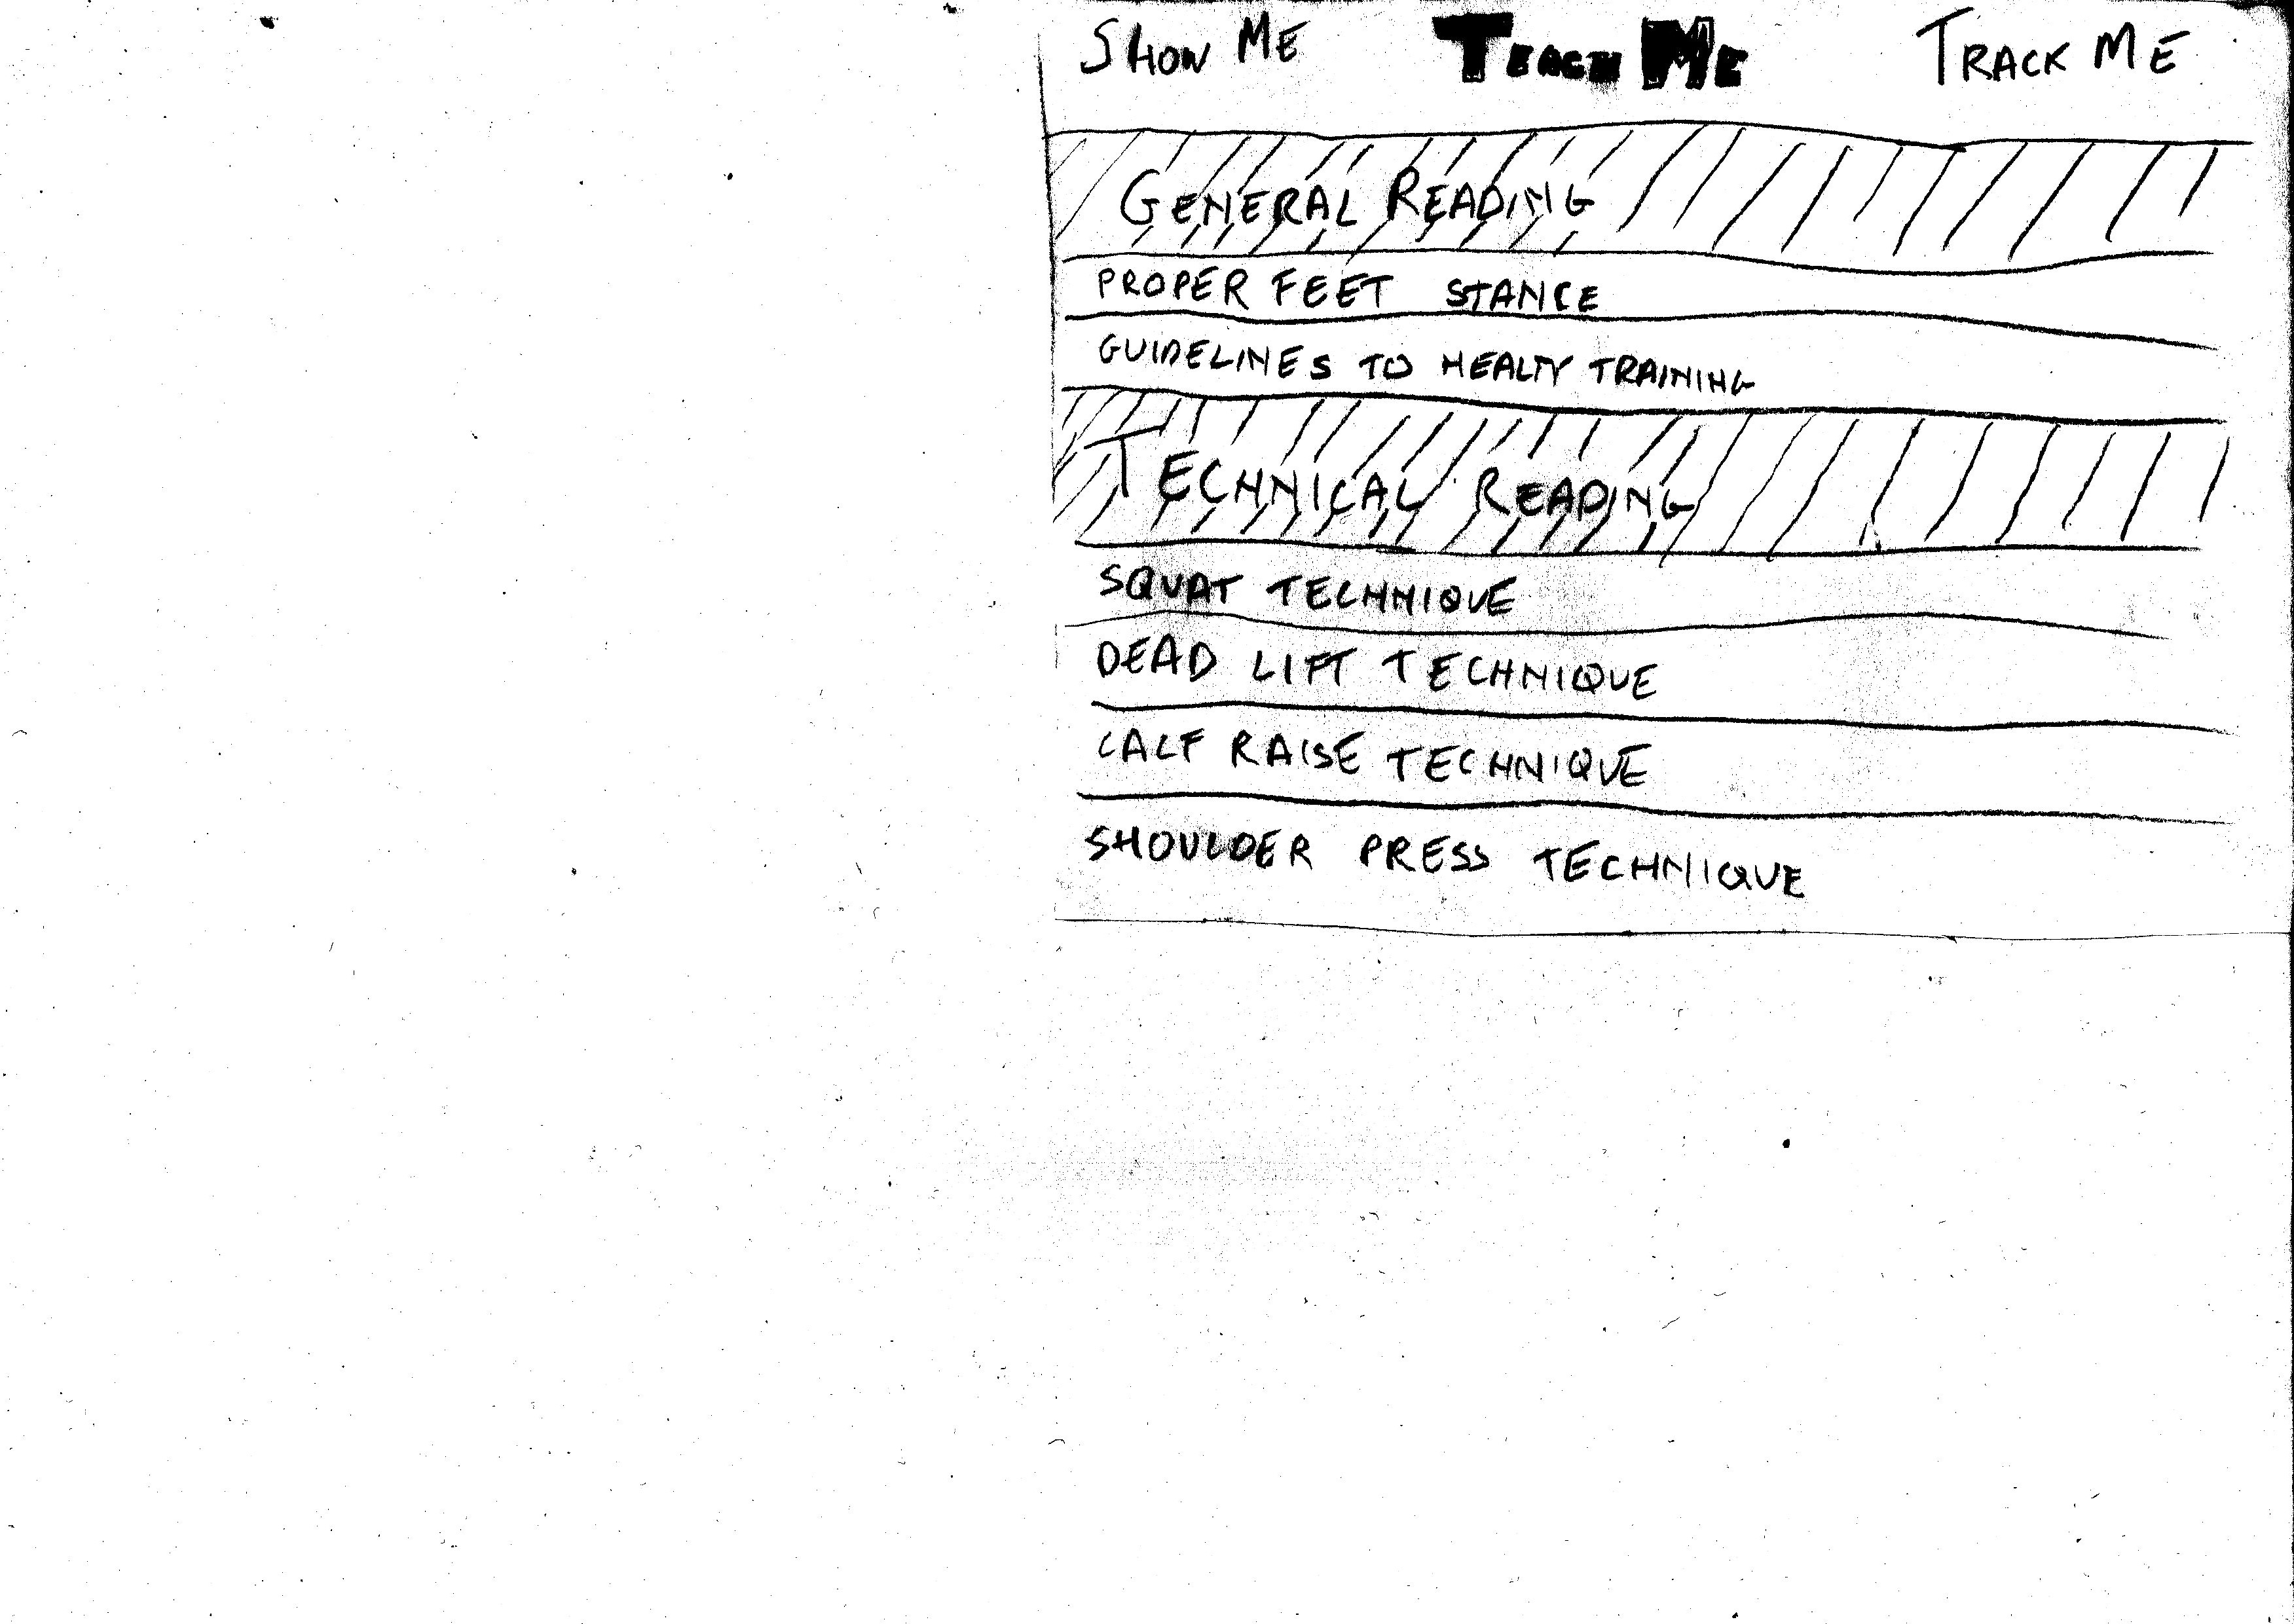 SHOW ME TEACH ME TRACK ME
GENERAL READING
PROPER FEET STANCE
GUIDELINES TO HEALTY TRAINING
TECHNICAL READING
SQUAT TECHNIQUE
DEAD LIFT TECHNIQUE
CALF RAISE TECHNIQUE
SHOULDER PRESS TECHNIQUE